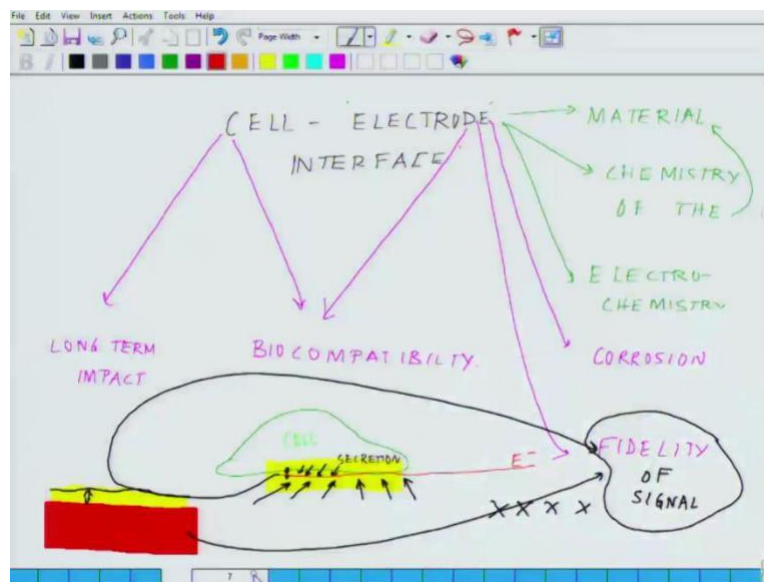 File Edit View Insert Actions Tools Help
Page Width
CELL - ELECTRODE
INTERFACE
MATERIAL
CHEMISTRY
OF THE
ELECTRO-
CHEMISTRY
LONG TERM
IMPACT
BIOCOMPATIBILTY.
CORROSION
CELL
SECRETION
E-
FIDELITY
OF
SIGNAL
X X X X
7